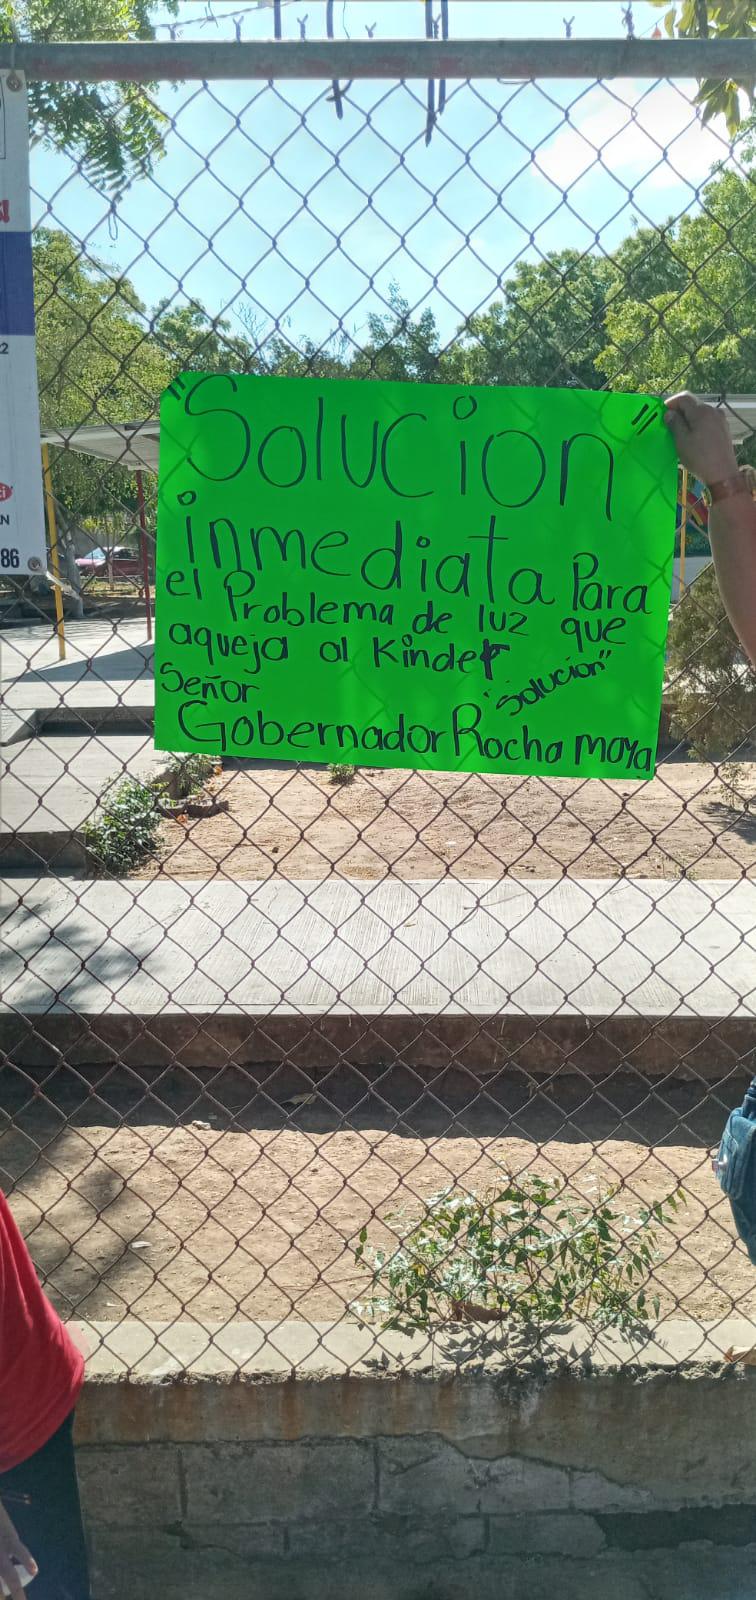 "Solucion"
inmediata Para
el Problema de luz que
aqueja al Kinder
"Solucion"
Señor
Gobernador Rocha Moya
2
ci
EN
86